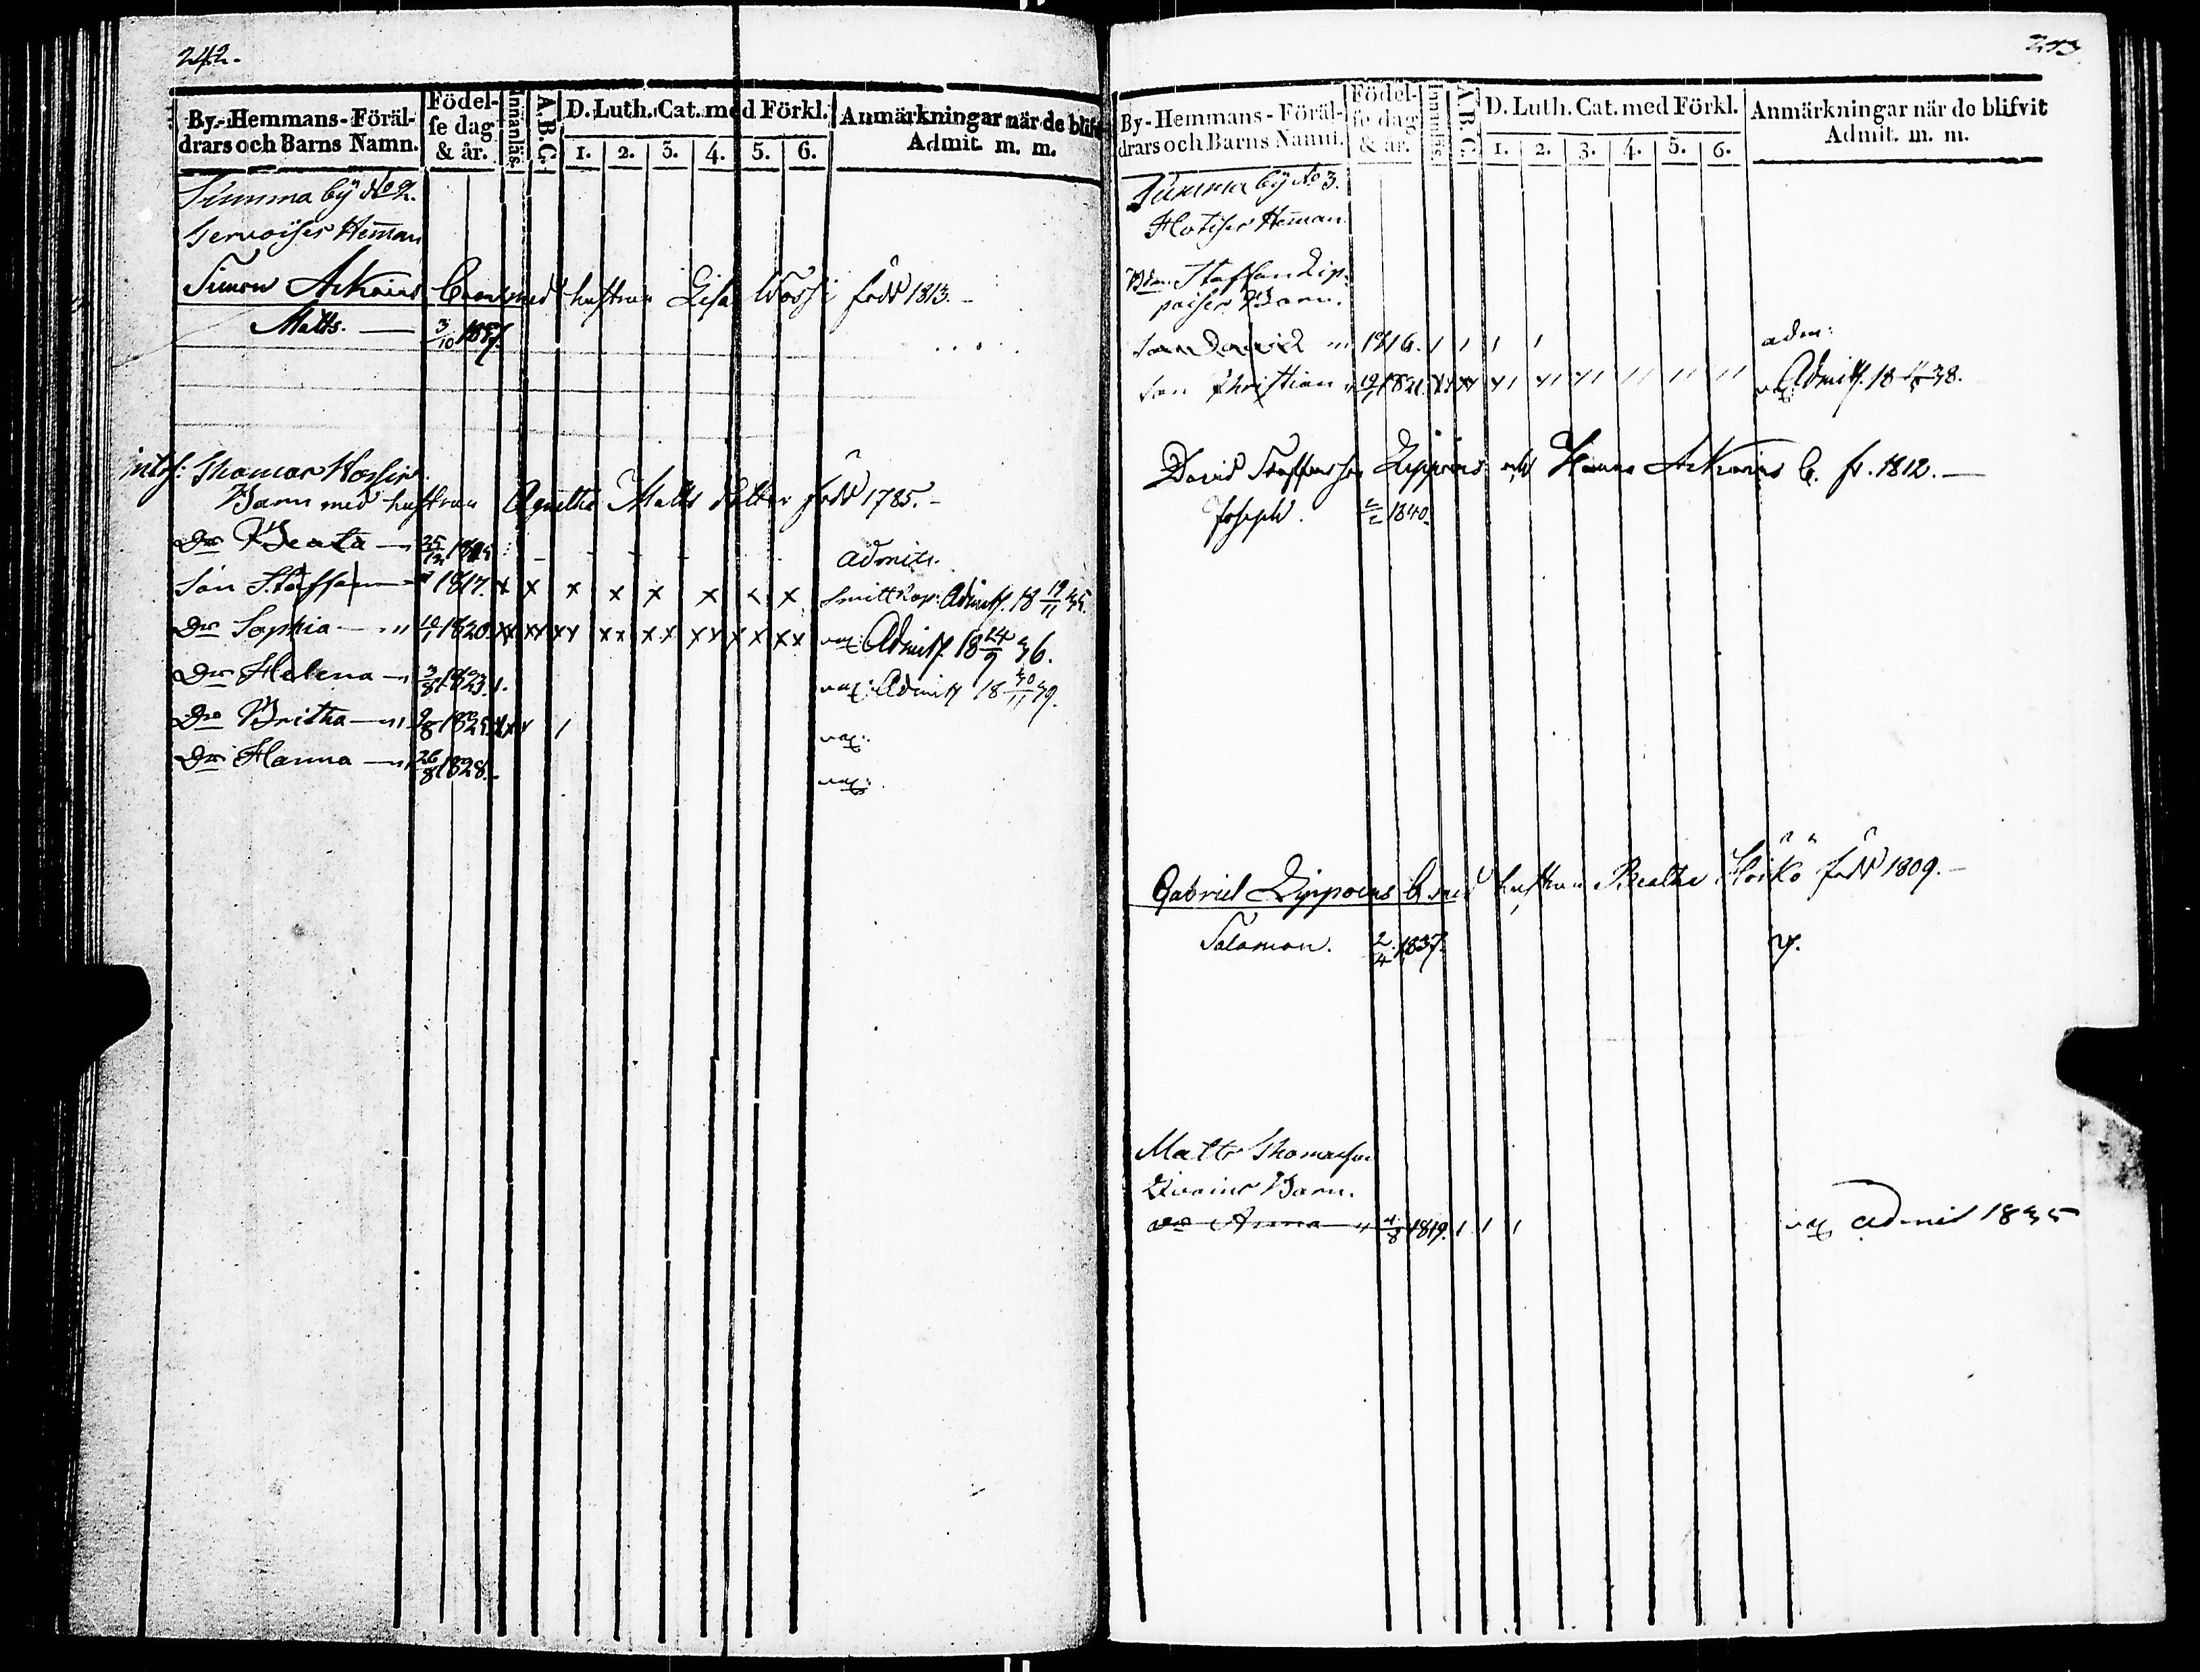 242.
By-Hemmans-Föräl-
drars och Barns Namn.
Födel-
se dag
& år.
Innanläs.
A.B.C.
D. Luth. Cat. med Förkl.
1. 2. 3. 4. 5. 6.
Anmärkningar när de blifvit
Admit. m. m.
Summa by No 2.
Hemman
Simon Arkoins Barn med hustrun Lisa född 1813.
Matts. 3/10 1837.
Thomas
Barn med hustrun Agnetha Matts dotter född 1785.
Dr Beata 25/12 1815 admit.
Son Staffan 1817. x x x x x x x x Admitt. 18 19/11 35.
Dr Sophia 10/1 1820. xx xx xx xx xx xx xx xx vax: Admitt. 18 24/9 36.
Dr Helena 3/8 1823. vax: Admitt 18 30/11 39.
Dr Britha 9/8 1825. vax:
Dr Hanna 26/8 1828. vax:
243
By-Hemmans-Föräl-
drars och Barns Namn.
Födel-
se dag
& år.
Innanläs.
A.B.C.
D. Luth. Cat. med Förkl.
1. 2. 3. 4. 5. 6.
Anmärkningar när de blifvit
Admit. m. m.
Summa by No 3.
Hemman
Bdn. Staffan Lip-
poiser Barn.
Son David 1816. adm:
Son Christian 1821. vax: Admitt. 1838.
David Staffansson Lippoins och Hanna Arkoins B. f. 1812.
Joseph. 1840.
Gabriel Lippoins B med hustrun Beatha född 1809.
Salomon. 2/4 1837.
Matts Thomasson
Barn.
Dr Anna 1819. vax admit 1835